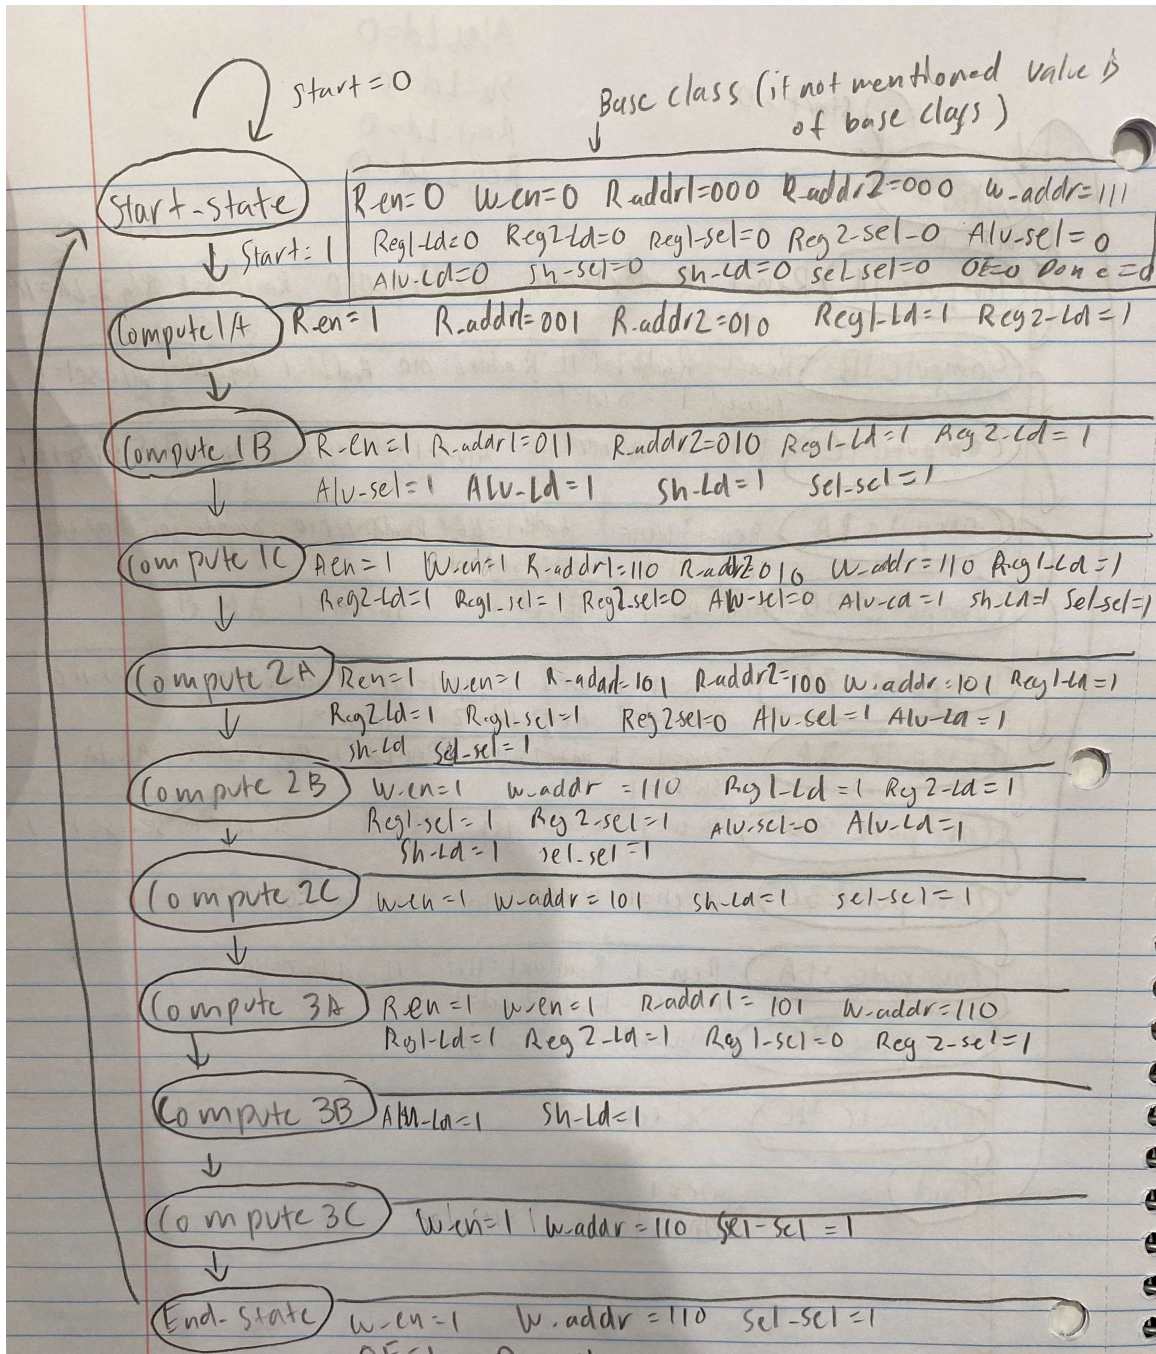 Start=0
Base class (if not mentioned value is
of base class)
Start-state
R-en=0 W-en=0 R-addr1=000 R-addr2=000 W-addr=111
Reg1-Ld=0 Reg2-Ld=0 Reg1-sel=0 Reg2-sel=0 Alu-sel=0
Start=1
Alu-Ld=0 Sh-sel=0 Sh-Ld=0 sel-sel=0 OE=0 Done=0
Compute1A
R-en=1 R-addr1=001 R-addr2=010 Reg1-Ld=1 Reg2-Ld=1
Compute 1B
R-en=1 R-addr1=011 R-addr2=010 Reg1-Ld=1 Reg2-Ld=1
Alu-sel=1 Alu-Ld=1 Sh-Ld=1 Sel-sel=1
Compute 1C
Ren=1 W-en=1 R-addr1=110 R-addr2=010 W-addr=110 Reg1-Ld=1
Reg2-Ld=1 Reg1-sel=1 Reg2-sel=0 Alu-sel=0 Alu-Ld=1 Sh-Ld=1 Sel-sel=1
Compute 2A
Ren=1 W-en=1 R-addr1=101 R-addr2=100 W-addr=101 Reg1-Ld=1
Reg2-Ld=1 Reg1-sel=1 Reg2sel=0 Alu-sel=1 Alu-Ld=1
Sh-Ld sel-sel=1
Compute 2B
W-en=1 W-addr=110 Reg1-Ld=1 Reg2-Ld=1
Reg1-sel=1 Reg2-sel=1 Alu-sel=0 Alu-Ld=1
Sh-Ld=1 sel-sel=1
Compute 2C
W-en=1 W-addr=101 Sh-Ld=1 sel-sel=1
Compute 3A
R-en=1 W-en=1 R-addr1=101 W-addr=110
Reg1-Ld=1 Reg2-Ld=1 Reg1-sel=0 Reg2-sel=1
Compute 3B
Alu-Ld=1 Sh-Ld=1
Compute 3C
W-en=1 W-addr=110 Sel-sel=1
End-state
W-en=1 W-addr=110 Sel-sel=1